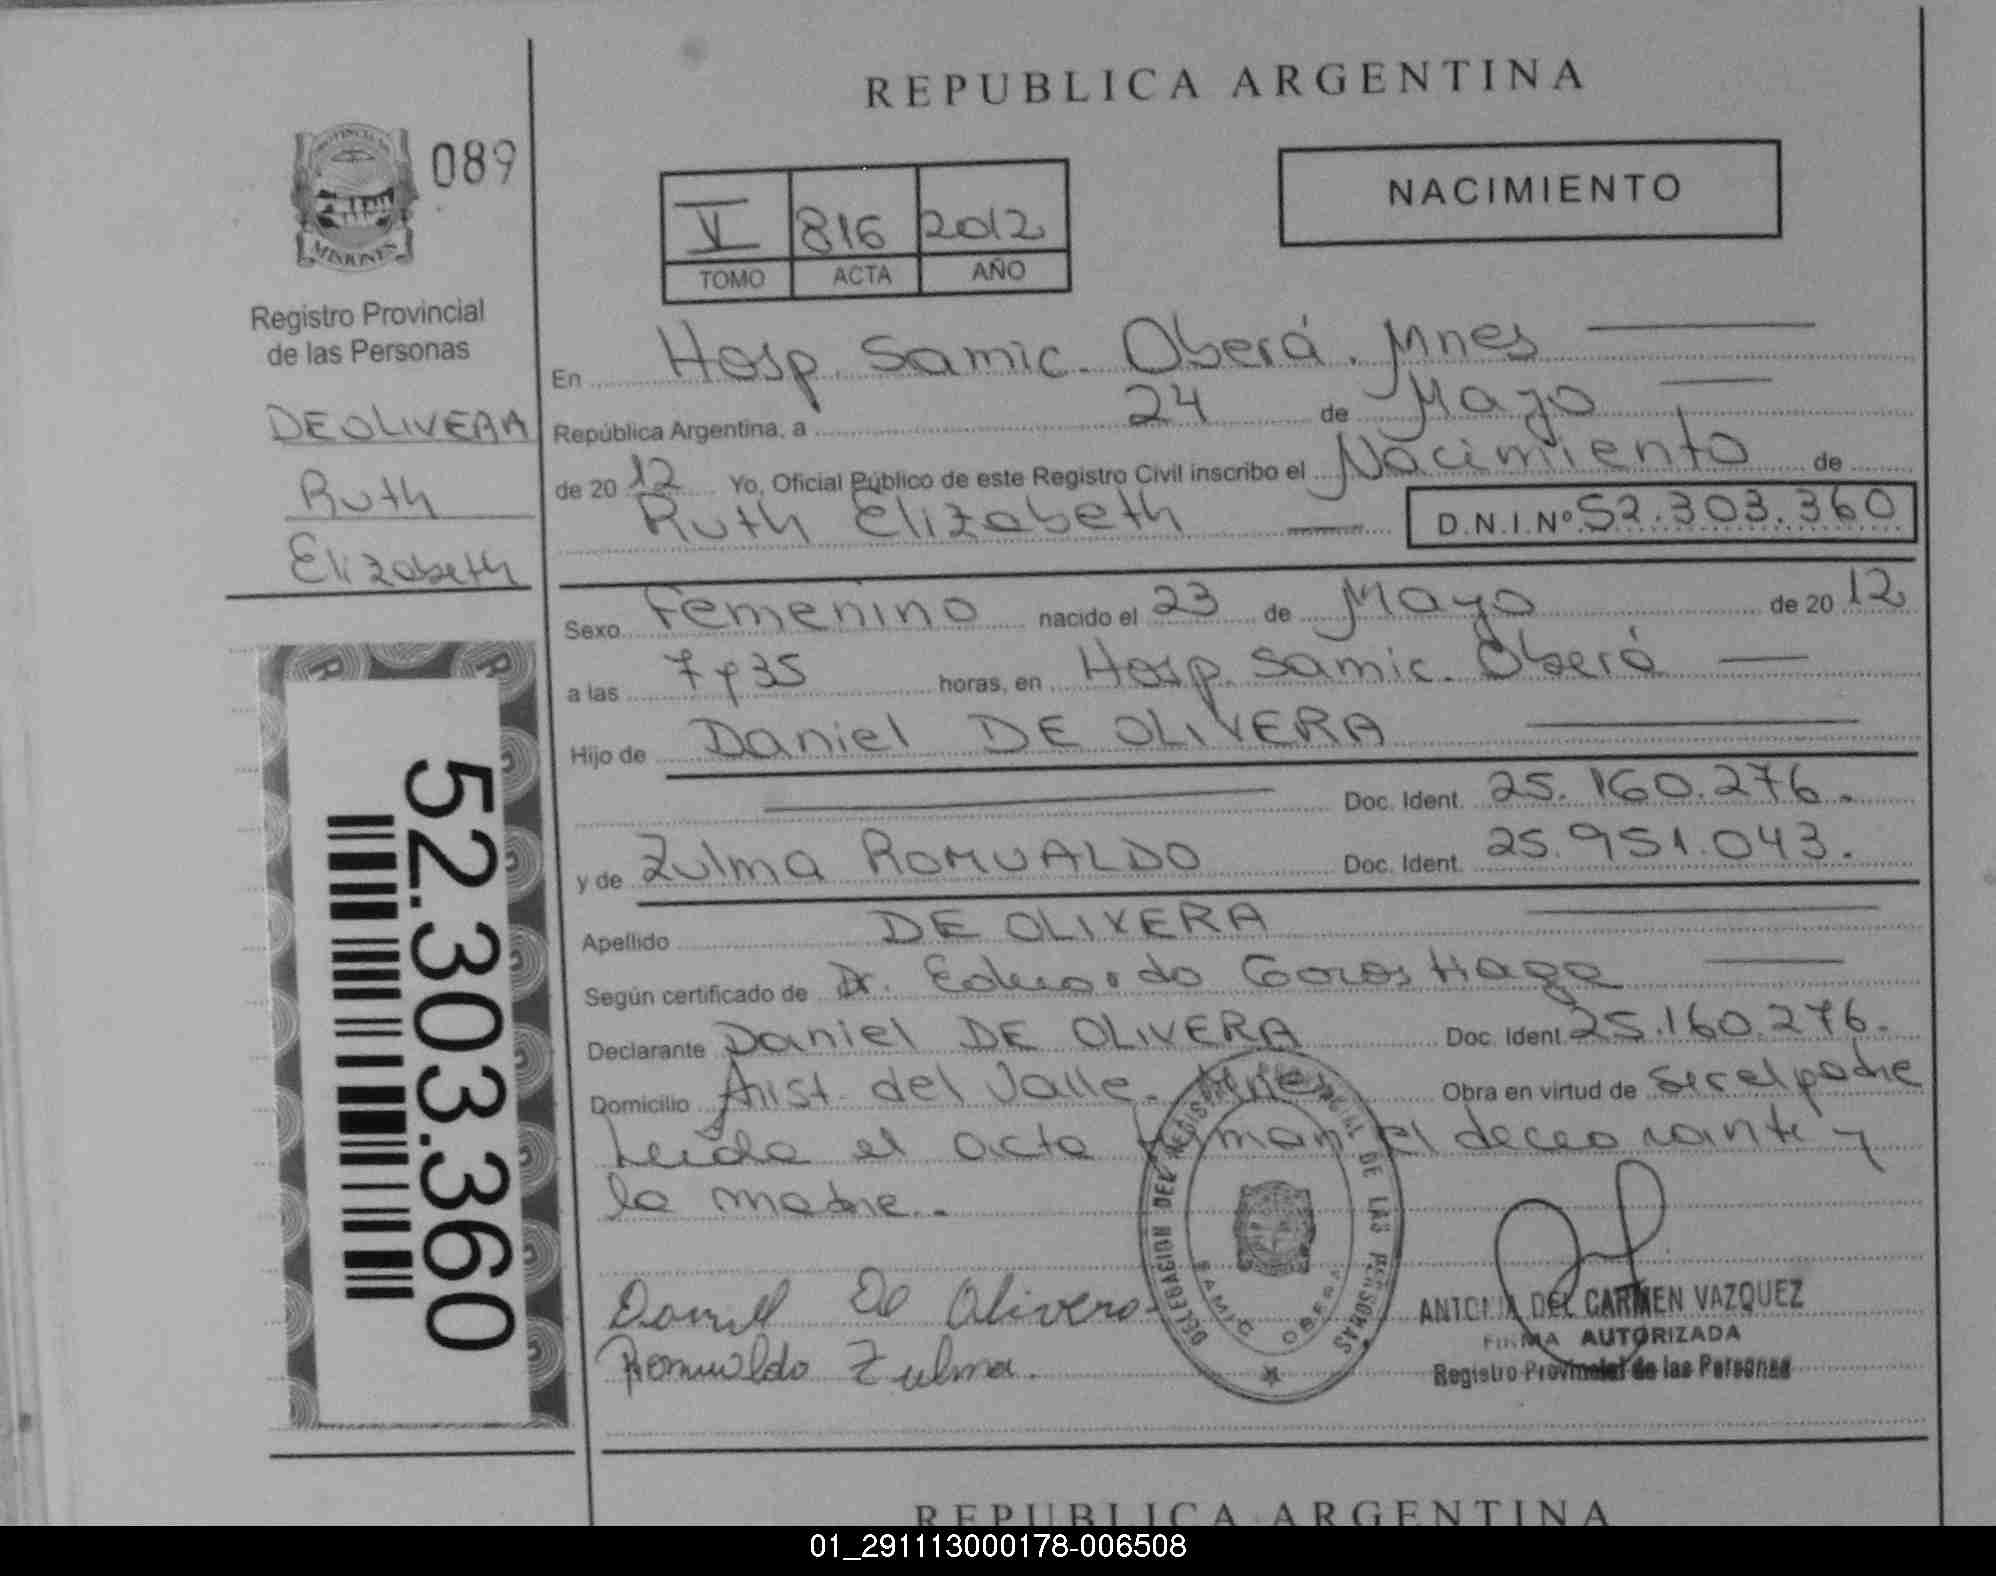 REPUBLICA ARGENTINA
089
MISIONES
Registro Provincial
de las Personas
DE OLIVERA
Ruth
Elizabeth
52.303.360
V 816 2012
TOMO ACTA AÑO
NACIMIENTO
En Hosp. Samic. Oberá. Mnes
República Argentina, a 24 de Mayo
de 2012 Yo, Oficial Público de este Registro Civil inscribo el Nacimiento de
Ruth Elizabeth D.N.I.Nº 52.303.360
Sexo Femenino nacido el 23 de Mayo de 2012
a las 7 y 35 horas, en Hosp. Samic. Oberá
Hijo de Daniel DE OLIVERA
Doc. Ident. 25.160.276.
y de Zulma ROMUALDO Doc. Ident. 25.951.043.
Apellido DE OLIVERA
Según certificado de Dr. Eduardo Gorostiaga
Declarante Daniel DE OLIVERA Doc. Ident. 25.160.276.
Domicilio Arist. del Valle. Mnes Obra en virtud de ser el padre
Leida el acta firman el declarante y
la madre.
Daniel De Olivera
Romualdo Zulma.
DELEGACION DEL REGISTRO PROVINCIAL DE LAS PERSONAS
SAMIC OBERA
ANTONIA DEL CARMEN VAZQUEZ
FIRMA AUTORIZADA
Registro Provincial de las Personas
REPUBLICA ARGENTINA
01_291113000178-006508